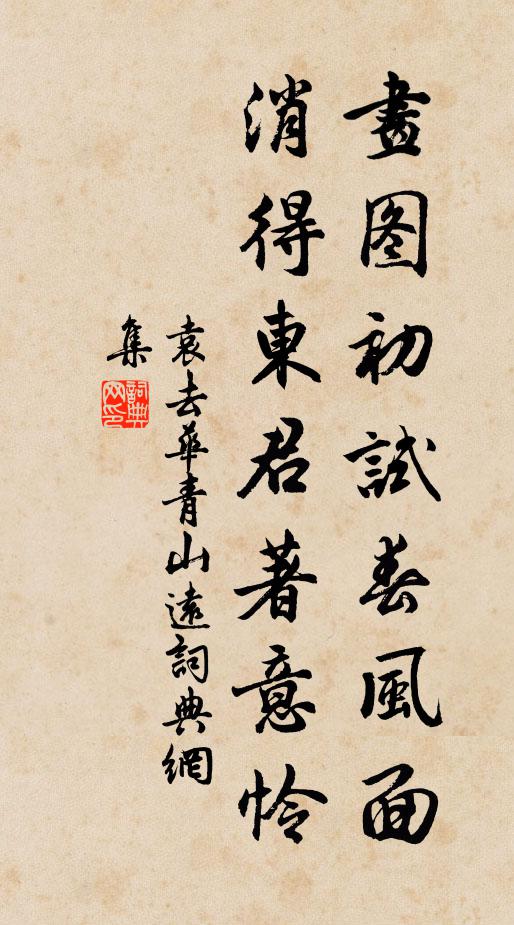 畫图初試春風面
消得東君著意怜
袁去華青山遠詞典網
集
詞典
网印